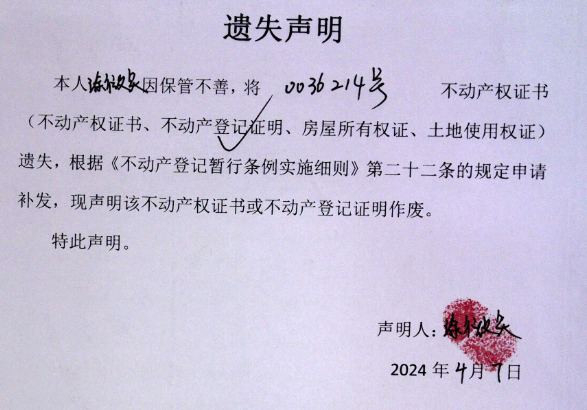 遗失声明
本人因保管不善，将 0036214号 不动产权证书
（不动产权证书、不动产登记证明、房屋所有权证、土地使用权证）
遗失，根据《不动产登记暂行条例实施细则》第二十二条的规定申请
补发，现声明该不动产权证书或不动产登记证明作废。
特此声明。
声明人：
2024 年 4月 7日